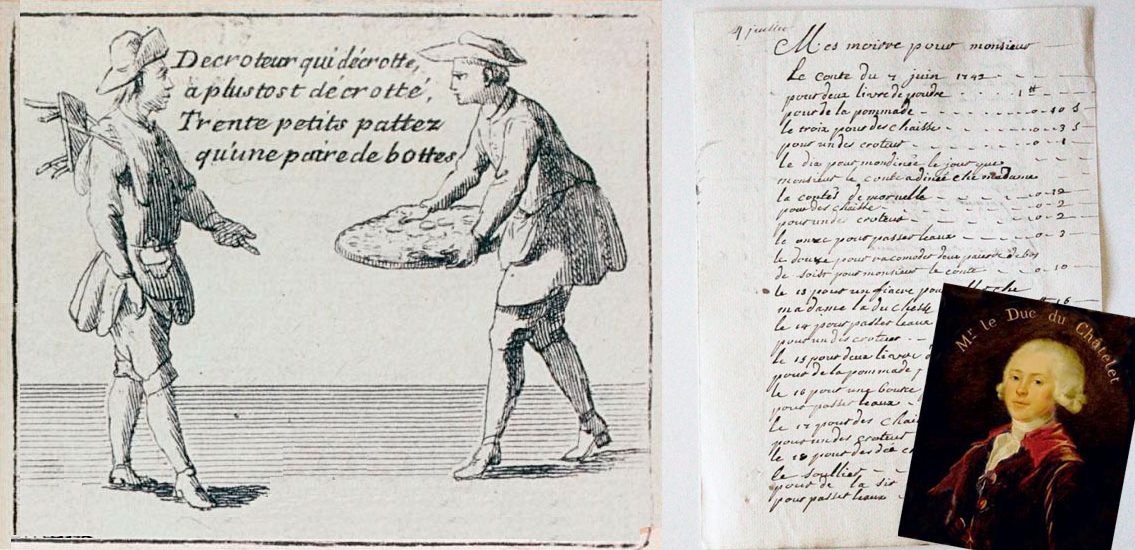 Decroteur qui décrotte,
à plustost décrotté,
Trente petits pattez
qu'une paire de bottes
4 juillet
Mes moirre pour monsieur
Le conte du 7 juin 1742
pour deux livre de poudre 1 ₶
pour de la pommade 0 - 10 s
le troix pour des chaisse 0 - 3 s
pour un des croteur 0 - 1
le dix pour mon dinée le jour que
monsieur le conte a dinée che madame
la contes de morvelle 0 - 12
pour des chaisse 0 - 2
pour un des croteur 0 - 2
le onze pour passer leaux 0 - 3
le douxe pour racomoder deux paire de bas
de soist pour monsieur le conte 0 - 10
le 13 pour un fiacre pour
madame la duchesse 16
le 14 pour passer leaux
pour un des croteur
le 15 pour deux livre
pour de la pommade
le 16 pour une
pour passer leaux
le 17 pour des chai
pour un des croteur
le 18 pour des
le soullier
pour de la
pour passer leaux
Mr. le Duc du Châtelet